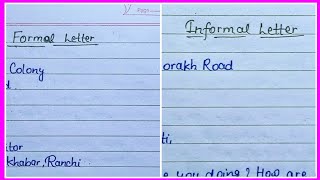 Formal Letter
Colony
tor
khabar, Ranchi
Informal Letter
orakh Road
ti,
you doing? How are